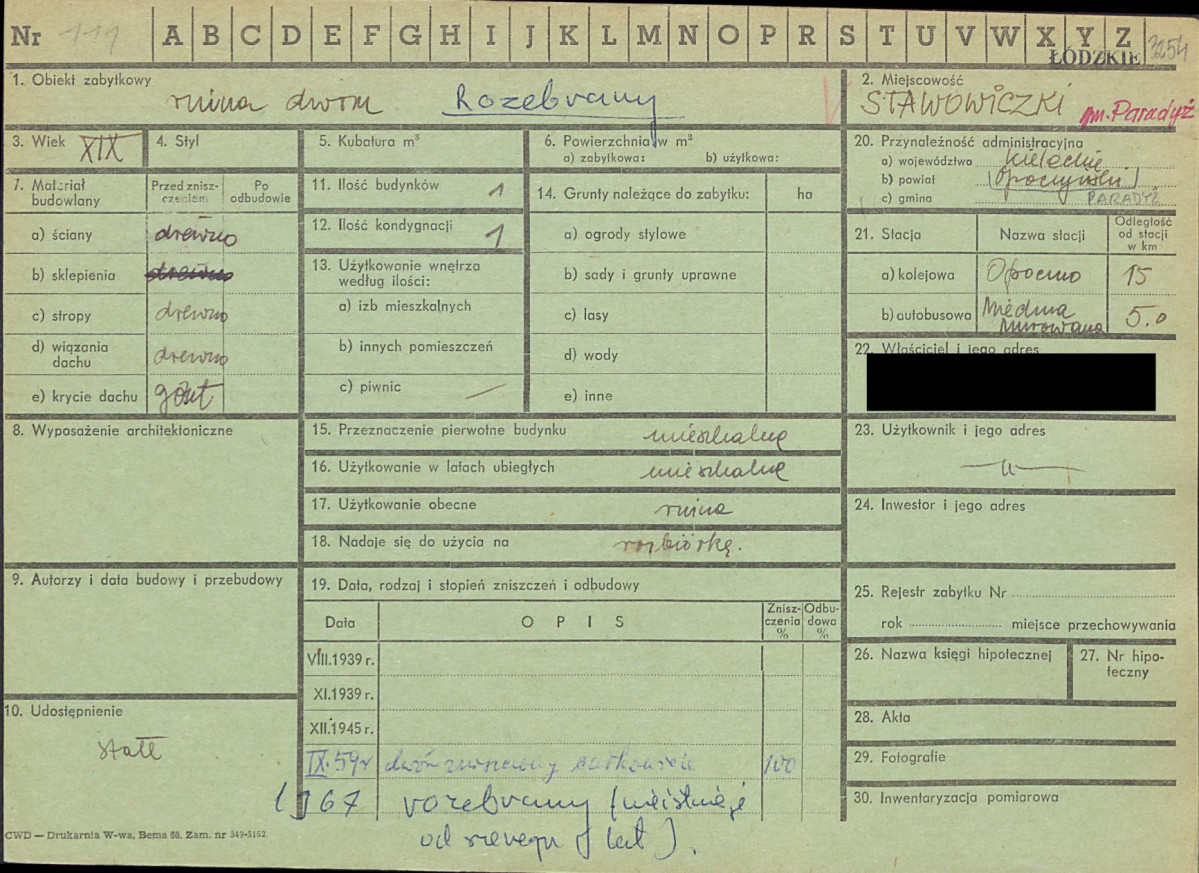 Nr 111 A B C D E F G H I J K L M N O P R S T U V W X Y Z 3254
ŁÓDZKIE
1. Obiekt zabytkowy
ruina dworu Rozebrany
2. Miejscowość
STAWOWICZKI gm. Paradyż
3. Wiek XIX
4. Styl
5. Kubatura m³
6. Powierzchnia w m²
a) zabytkowa: b) użytkowa:
7. Materiał budowlany
Przed zniszczeniem
Po odbudowie
a) ściany drewno
b) sklepienia drewno
c) stropy drewno
d) wiązania dachu drewno
e) krycie dachu gont
8. Wyposażenie architektoniczne
9. Autorzy i data budowy i przebudowy
10. Udostępnienie
stałe
11. Ilość budynków 1
12. Ilość kondygnacji 1
13. Użytkowanie wnętrza według ilości:
a) izb mieszkalnych
b) innych pomieszczeń
c) piwnic —
14. Grunty należące do zabytku: ha
a) ogrody stylowe
b) sady i grunty uprawne
c) lasy
d) wody
e) inne
15. Przeznaczenie pierwotne budynku mieszkalne
16. Użytkowanie w latach ubiegłych mieszkalne
17. Użytkowanie obecne ruina
18. Nadaje się do użycia na rozbiórkę.
19. Data, rodzaj i stopień zniszczeń i odbudowy
Data OPIS Zniszczenia % Odbudowa %
VIII.1939 r.
XI.1939 r.
XII.1945 r.
IX.59r dwór zrujnowany całkowicie 100
1967 rozebrany (nie istnieje
od szeregu lat).
20. Przynależność administracyjna
a) województwo kieleckie
b) powiat opoczyński
c) gmina PARADYŻ
21. Stacja Nazwa stacji Odległość od stacji w km
a) kolejowa Opoczno 15
b) autobusowa Miedzna Murowana 5.0
22. Właściciel i jego adres
23. Użytkownik i jego adres
—"—
24. Inwestor i jego adres
25. Rejestr zabytku Nr
rok miejsce przechowywania
26. Nazwa księgi hipotecznej
27. Nr hipoteczny
28. Akta
29. Fotografie
30. Inwentaryzacja pomiarowa
CWD — Drukarnia W-wa, Bema 60. Zam. nr 349-5162